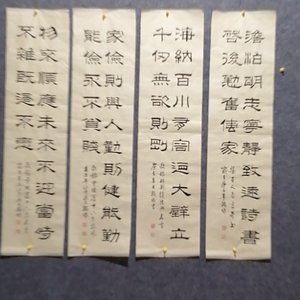 澹泊明志寧靜致遠詩書
啓後勤奮傳家
海納百川有容迺大壁立
千仞無欲則剛
家儉則興人勤則健能勤
能儉永不貧賤
物來順應未來不迎當時
不雜既過不戀